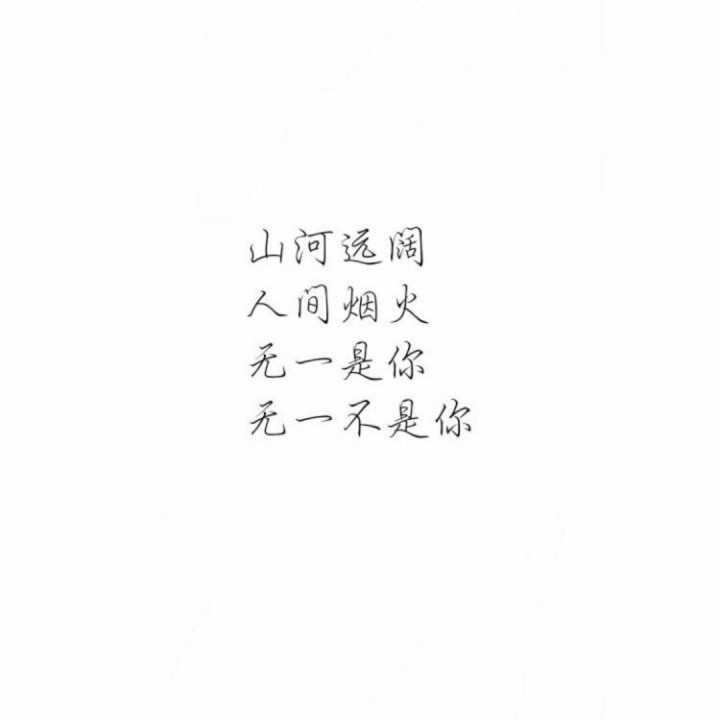 山河远阔
人间烟火
无一是你
无一不是你